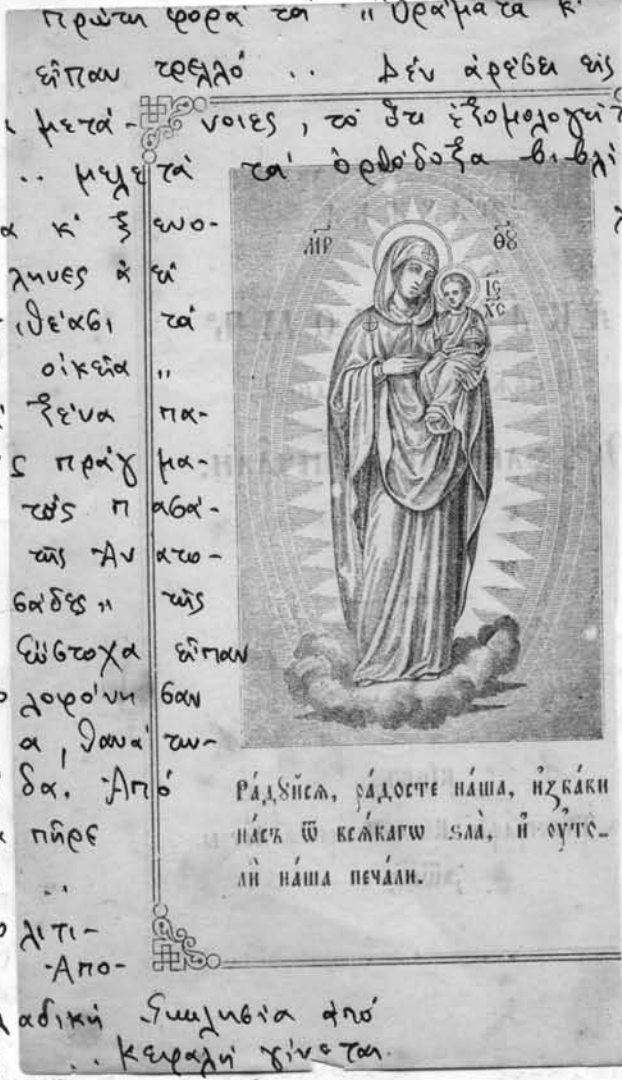 πρώτη φορά τα "Ὁράματα κ'
εἶπαν τρελλό .. Δέν ἀρέσει εἰς
μετά- νοιες, τό ὅτι ἐξομολογεῖτ
.. μελετά τα' ὀρθόδοξα βιβλί
α κ' ξενο-
ληνες ἀ εί
ιθέασι τά
οἰκεῖα "
ξένα πα-
ς πράγ μα-
τούς π ασά-
τῆς Ἀν ατο-
σάδες " τῆς
Εὔστοχα εἶπαν
λοφόνη σαν
α, θανά τω-
δα. Ἀπό
πῆρε
..
ο λιτι-
Ἀπο-
αδική Ἐκκλησία ἀπό
.. κεφαλή γίνεται.
МИР ѲꙊ
І҆С ХС
Ра́дꙋйсѧ, ра́досте на́ша, и҆зба́ви
на́съ ѿ всѧ́кагѡ ѕла̀, и҆ ᲂу҆то-
лѝ на́ша печа́ли.